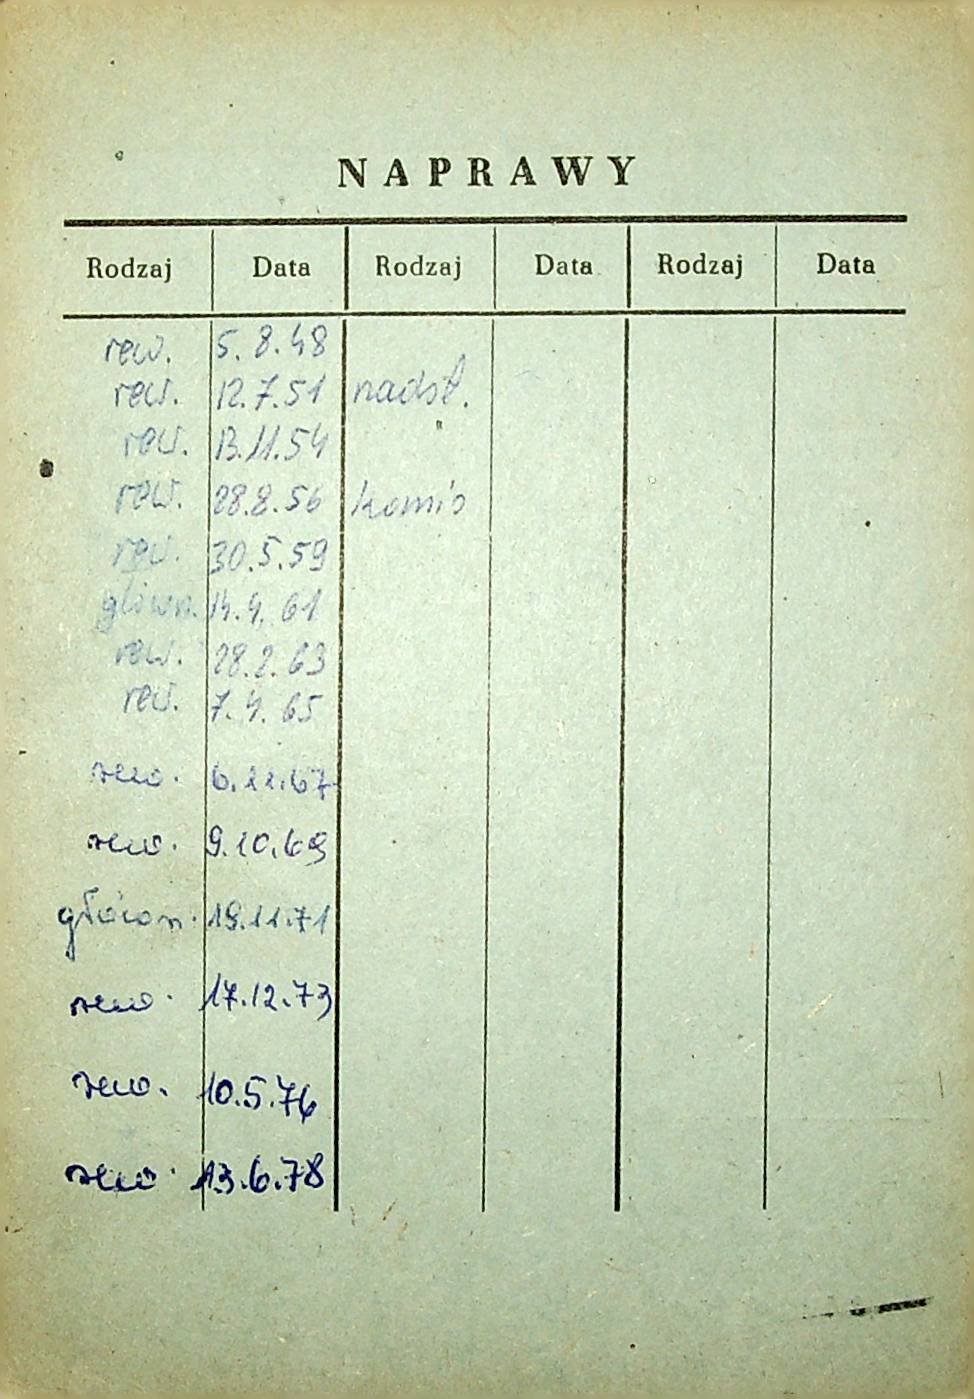 NAPRAWY
Rodzaj Data Rodzaj Data Rodzaj Data
rew. 5.8.48
rew. 12.7.51 nadst.
rew. 13.11.54
rew. 28.8.56
rew. 30.5.59
główn. 14.4.61
rew. 28.2.63
rew. 7.4.65
rew. 6.11.67
rew. 9.10.69
główn. 19.11.71
rew. 17.12.73
rew. 10.5.76
rew. 13.6.78